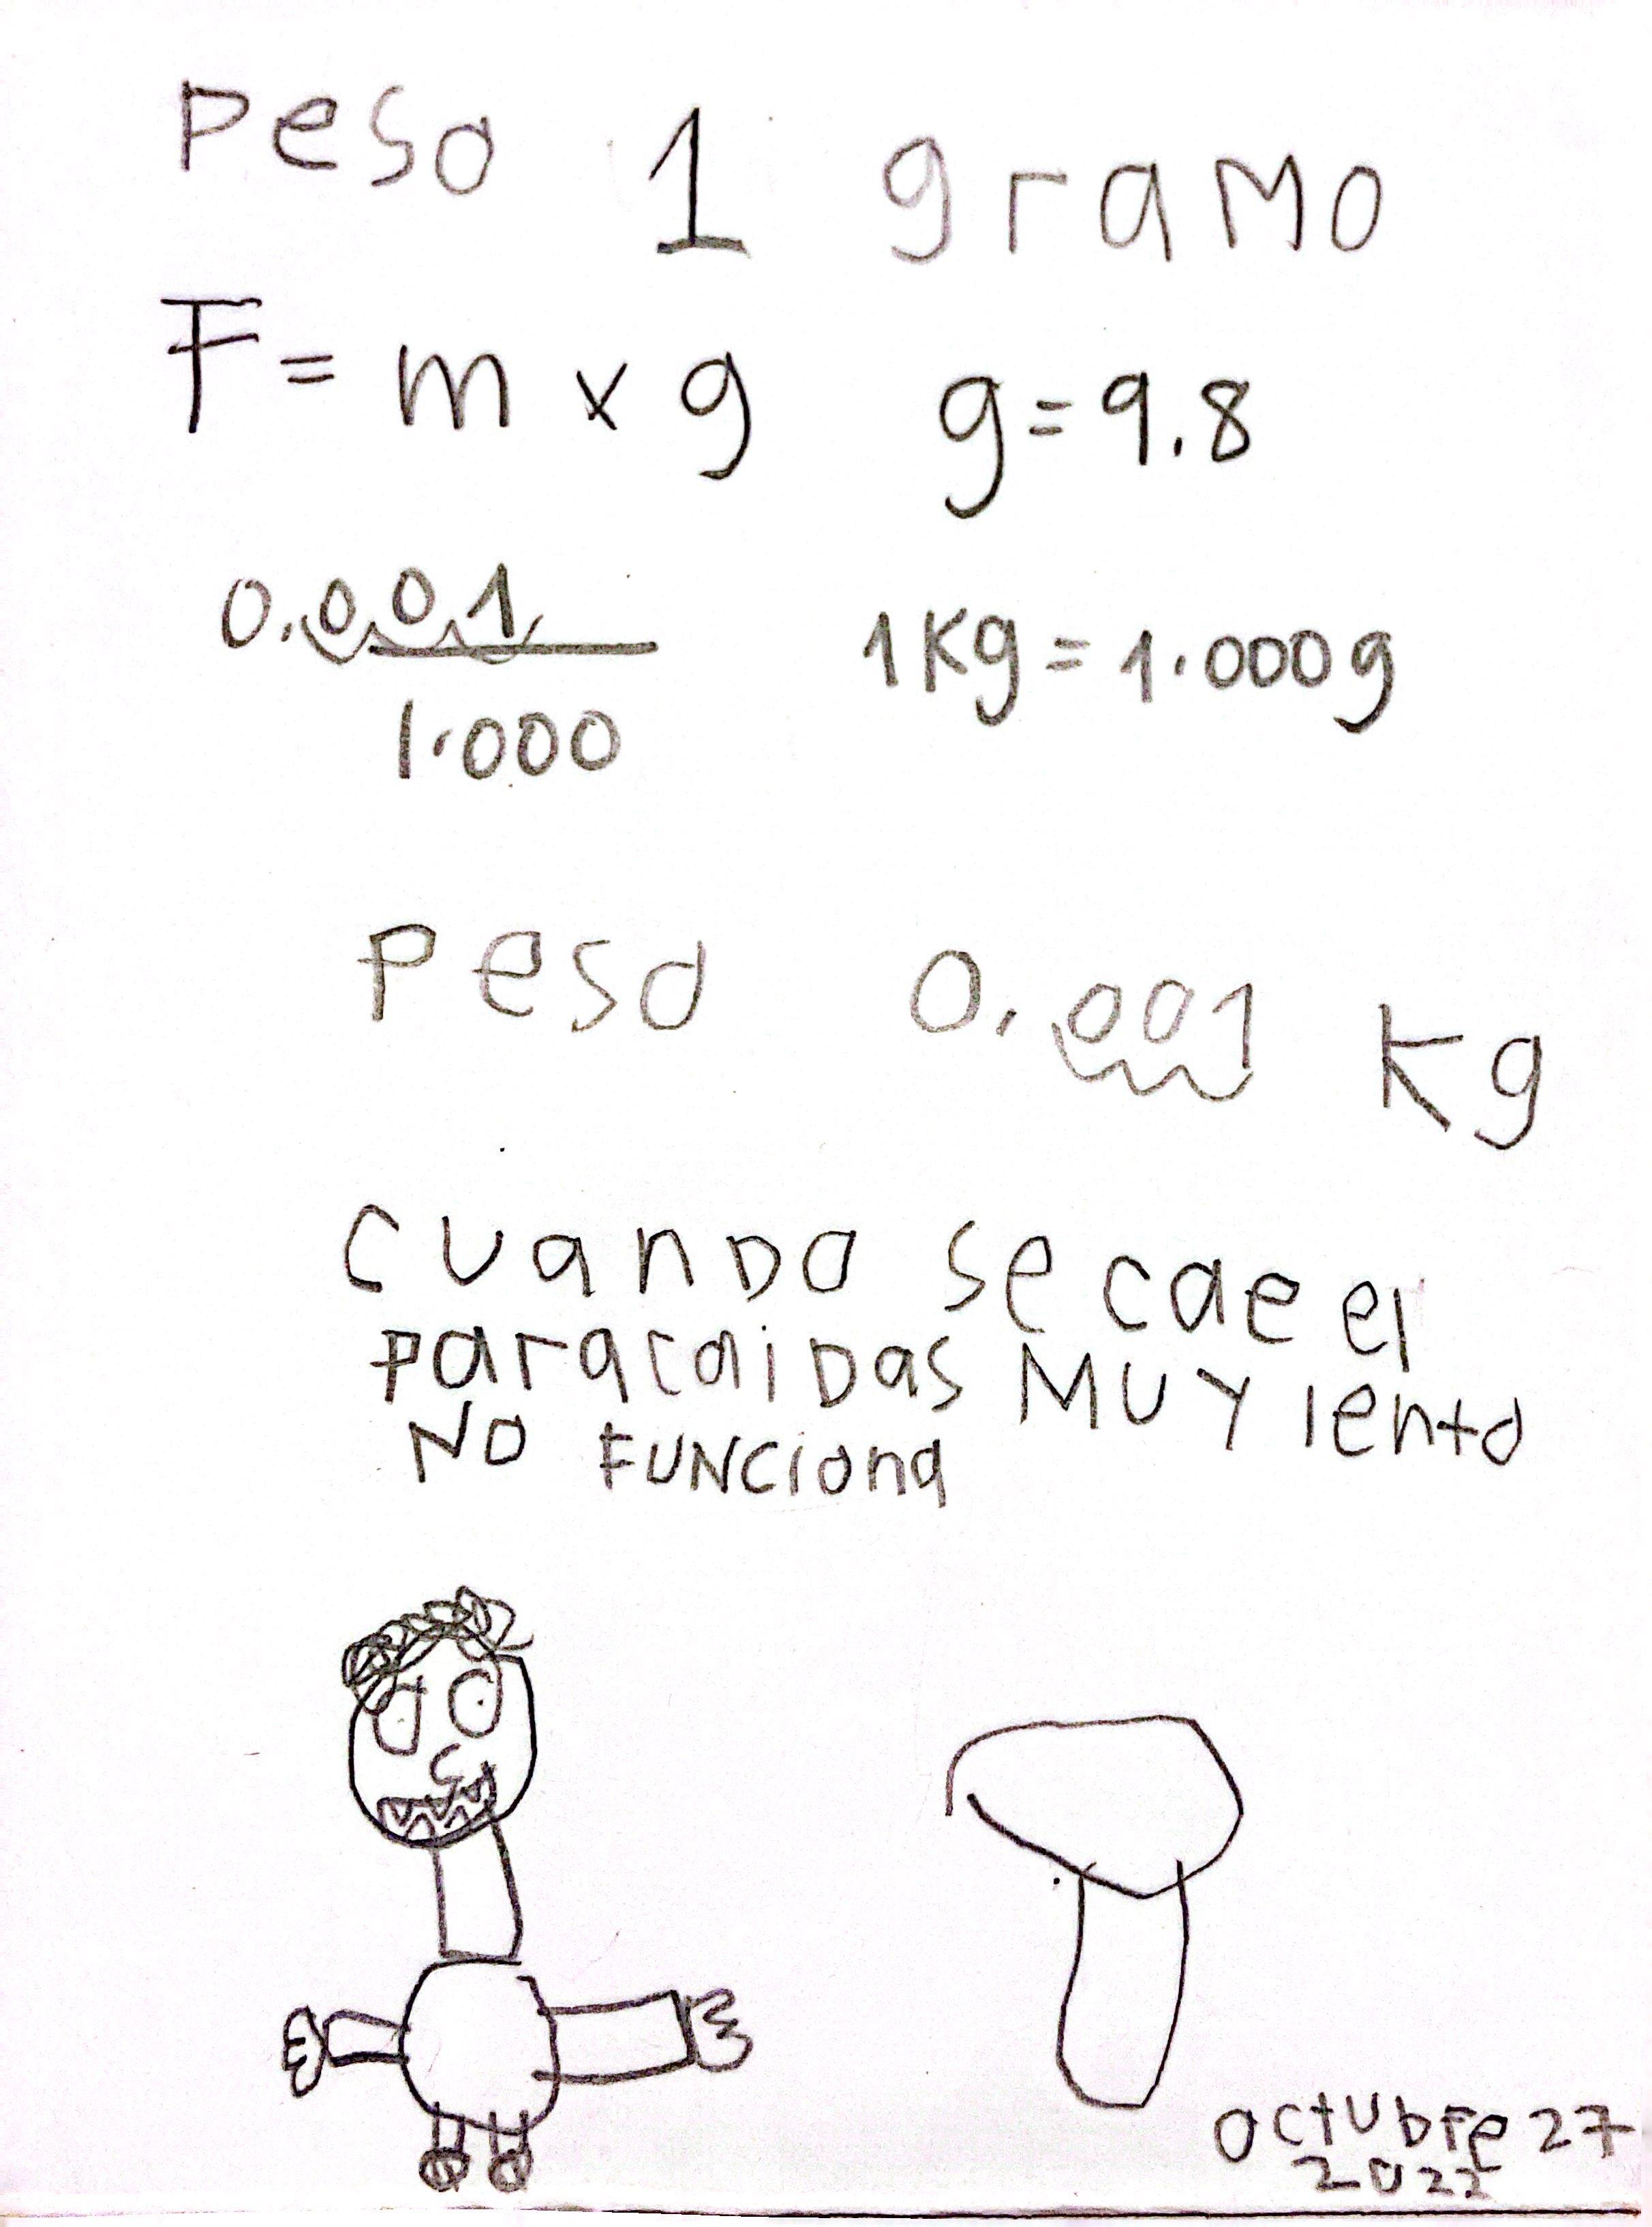 Peso 1 gramo
F = m x g g = 9.8
0.001 1Kg = 1.000g
1.000
Peso 0.001 Kg
Cuando se cae el
paracaidas MUY lento
NO FUNCIONA
Octubre 27
2022